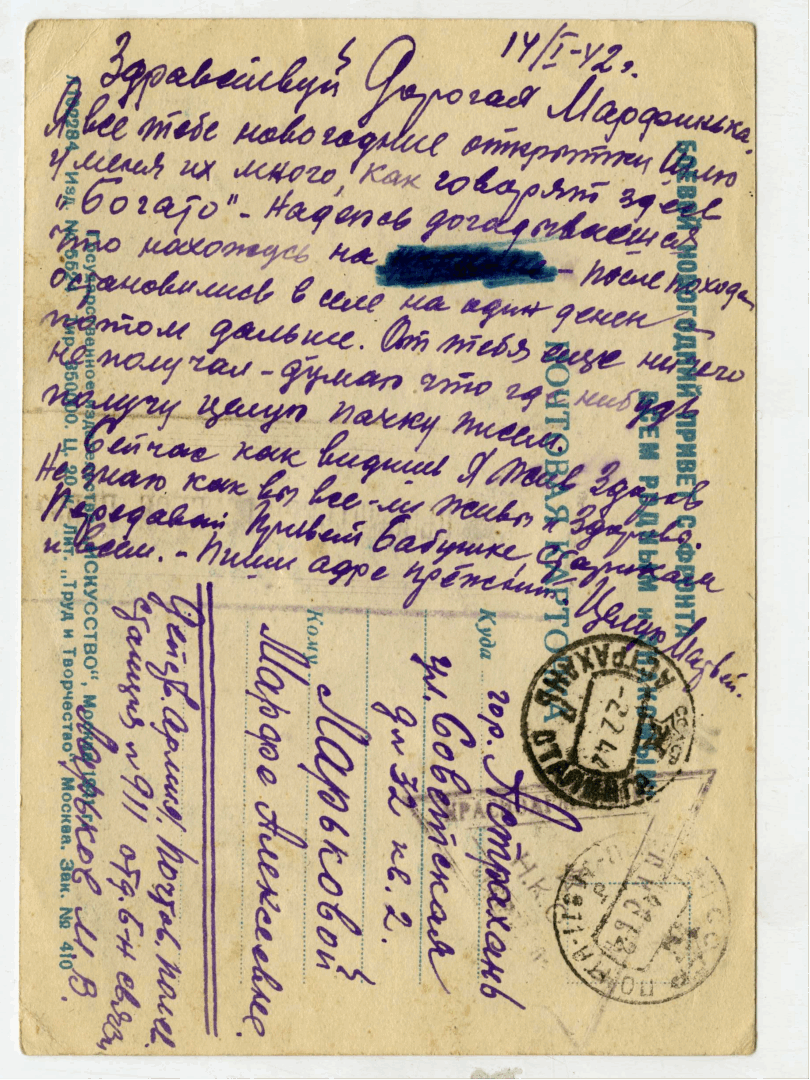 14/I-42г.
Здравствуй Дорогая Марфинька.
Я все тебе новогодние открытки шлю
у меня их много, как говорят здесь
"богато" - Надеюсь догадываешься
что нахожусь на - после похода
остановились в селе на один день
потом дальше. От тебя еще ничего
не получал - думаю что где нибудь
получу целую пачку писем.
Сейчас как видишь я жив здоров
Не знаю как вы все-ли живы и здоровы.
Передавай привет бабушке, старикам
и всем. - Пиши адре прежний. Целую Матвей.
БОЕВОЙ НОВОГОДНИЙ ПРИВЕТ С ФРОНТА
ВСЕМ РОДНЫМ И
ПОЧТОВАЯ КАРТОЧКА
Куда
гор. Астрахань
ул. Советская
дл 32 кв. 2.
Кому
Марьковой
Марфе Алексеевне.
Действ. Армия, Почтов. полев.
станция № 911 отд. б-н связи,
Марьков М В.
Государственное издательство "ИСКУССТВО", Москва
Лит. "Труд и Творчество", Москва. Зак. № 410
АСТРАХАНЬ
-2 2 42
КРАСНОДАР
ПОЧТА